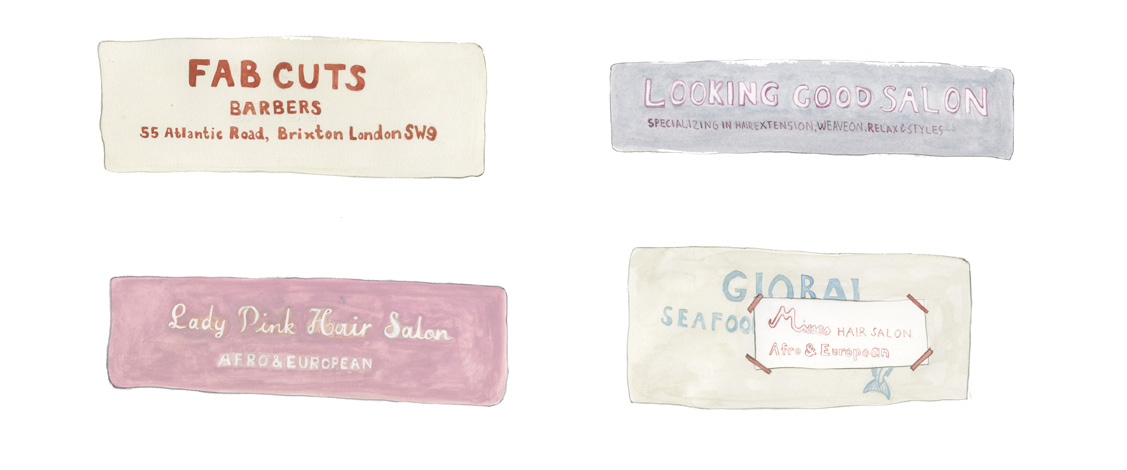 FAB CUTS
BARBERS
55 Atlantic Road, Brixton London SW9
LOOKING GOOD SALON
SPECIALIZING IN HAIR EXTENSION, WEAVEON. RELAX & STYLES
Lady Pink Hair Salon
AFRO & EUROPEAN
GLOBAL
SEAFOO
HAIR SALON
Afro & European